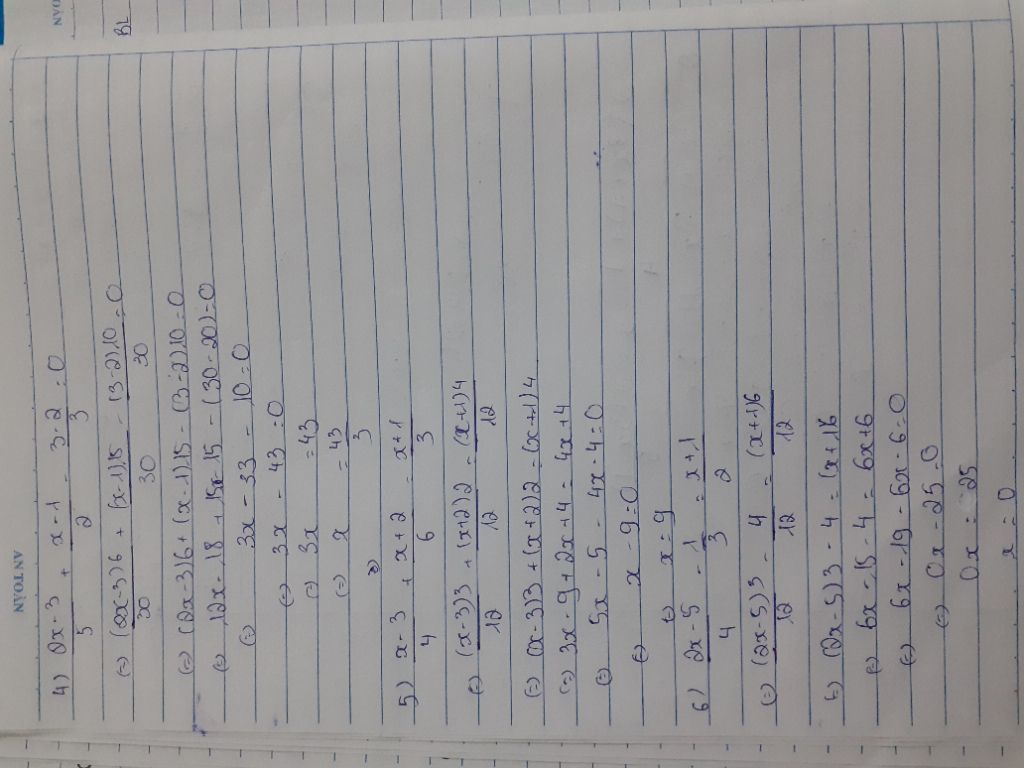 AN TOAN
4) 2x-3 + x-1 - 3-2 = 0
5 2 3
(=) (2x-3)6 + (x-1)15 - (3-2)10 = 0
30 30 30
(=) (2x-3)6 + (x-1)15 - (3-2)10 = 0
(=) 12x-18 + 15x-15 - (30-20) = 0
(=) 3x - 33 - 10 = 0
(=) 3x - 43 = 0
(=) 3x = 43
(=) x = 43
3
5) x-3 + x+2 = x+1
4 6 3
(=) (x-3)3 + (x+2)2 = (x+1)4
12 12 12
(=) (x-3)3 + (x+2)2 = (x+1)4
(=) 3x-9 + 2x+4 = 4x+4
(=) 5x-5 - 4x-4 = 0
(=) x-9 = 0
(=) x = 9
6) 2x-5 - 1 = x+1
4 3 2
(=) (2x-5)3 - 4 = (x+1)6
12 12 12
(=) (2x-5)3 - 4 = (x+1)6
(=) 6x-15 - 4 = 6x+6
(=) 6x-19 - 6x-6 = 0
(=) 0x-25 = 0
0x = 25
x = 0